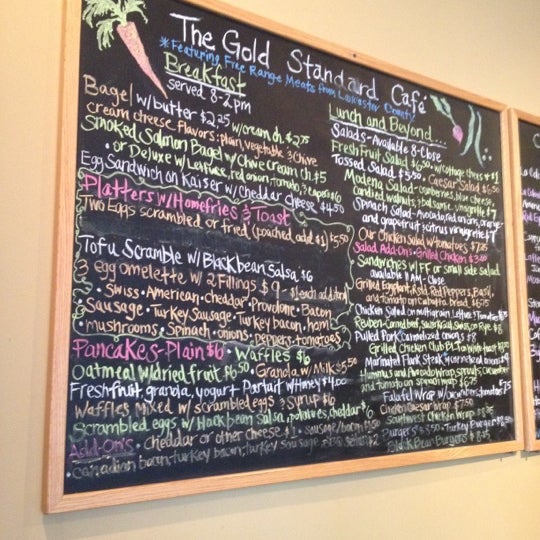 The Gold Standard Café
*Featuring Free Range Meats from Lancaster County
Breakfast
served 8-2 pm
Bagel w/butter $2.25 w/cream ch. $2.75
cream cheese flavors: plain, vegetable & chive
Smoked Salmon Bagel w/Chive cream ch. $5
or Deluxe w/Lettuce, red onion, tomato, & capers $6
Egg Sandwich on Kaiser w/cheddar cheese $4.50
Platters w/Homefries & Toast
Two Eggs scrambled or fried (poached add $1) $5.50
Tofu Scramble w/Black bean Salsa $6
3 egg omelette w/ 2 Fillings $9 - $1 each additional
• Swiss • American • cheddar • Provolone • Bacon
• Sausage • Turkey Sausage • Turkey bacon • ham
• mushrooms • Spinach • onions • peppers • tomatoes
Pancakes - Plain $6 • Waffles $6
Oatmeal w/dried fruit $6.50 • Granola w/Milk $5.50
Fresh fruit, granola, yogurt Parfait w/Honey $4.00
Waffles Mixed w/ scrambled eggs & syrup $6
Scrambled eggs w/ black bean salsa, potatoes, cheddar $6
Add-On's • cheddar or other cheese $1 • sausage/bacon
• canadian bacon, turkey bacon, turkey sausage
Lunch and Beyond...
Salads - Available 11-Close
Fresh Fruit Salad $6.50 w/cottage cheese
Tossed Salad $5.50 • Caesar Salad $6.50
Modena Salad - cranberries, blue cheese,
candied walnuts, balsamic vinaigrette $7
Spinach Salad - Avocado, red onions, orange
and grapefruit & citrus vinaigrette $7
Our Chicken Salad w/tomatoes $7.25
Salad Add-On's - Grilled Chicken
Sandwiches w/ FF or small side Salad
available 11 AM - Close
Grilled Eggplant, Rstd. Red Peppers, Basil,
and tomato on Ciabatta bread $6.75
Chicken Salad on multigrain Lettuce & Tomatoes
Reuben-Corned beef, Sauerkraut, Swiss on Rye $8
Pulled Pork
Grilled Chicken Club
Marinated Flank Steak
Hummus and Avocado Wrap, sprouts, cucumber
and tomato on Spinach wrap
Falafel Wrap w/cucumbers, tomatoes
Chicken Caesar Wrap
Southwest Chicken Wrap
Burgers • Turkey Burgers
Black Bean Burgers